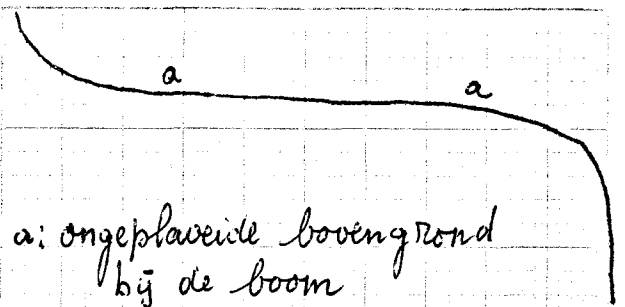 a a
a: ongeplaveide bovengrond
bij de boom